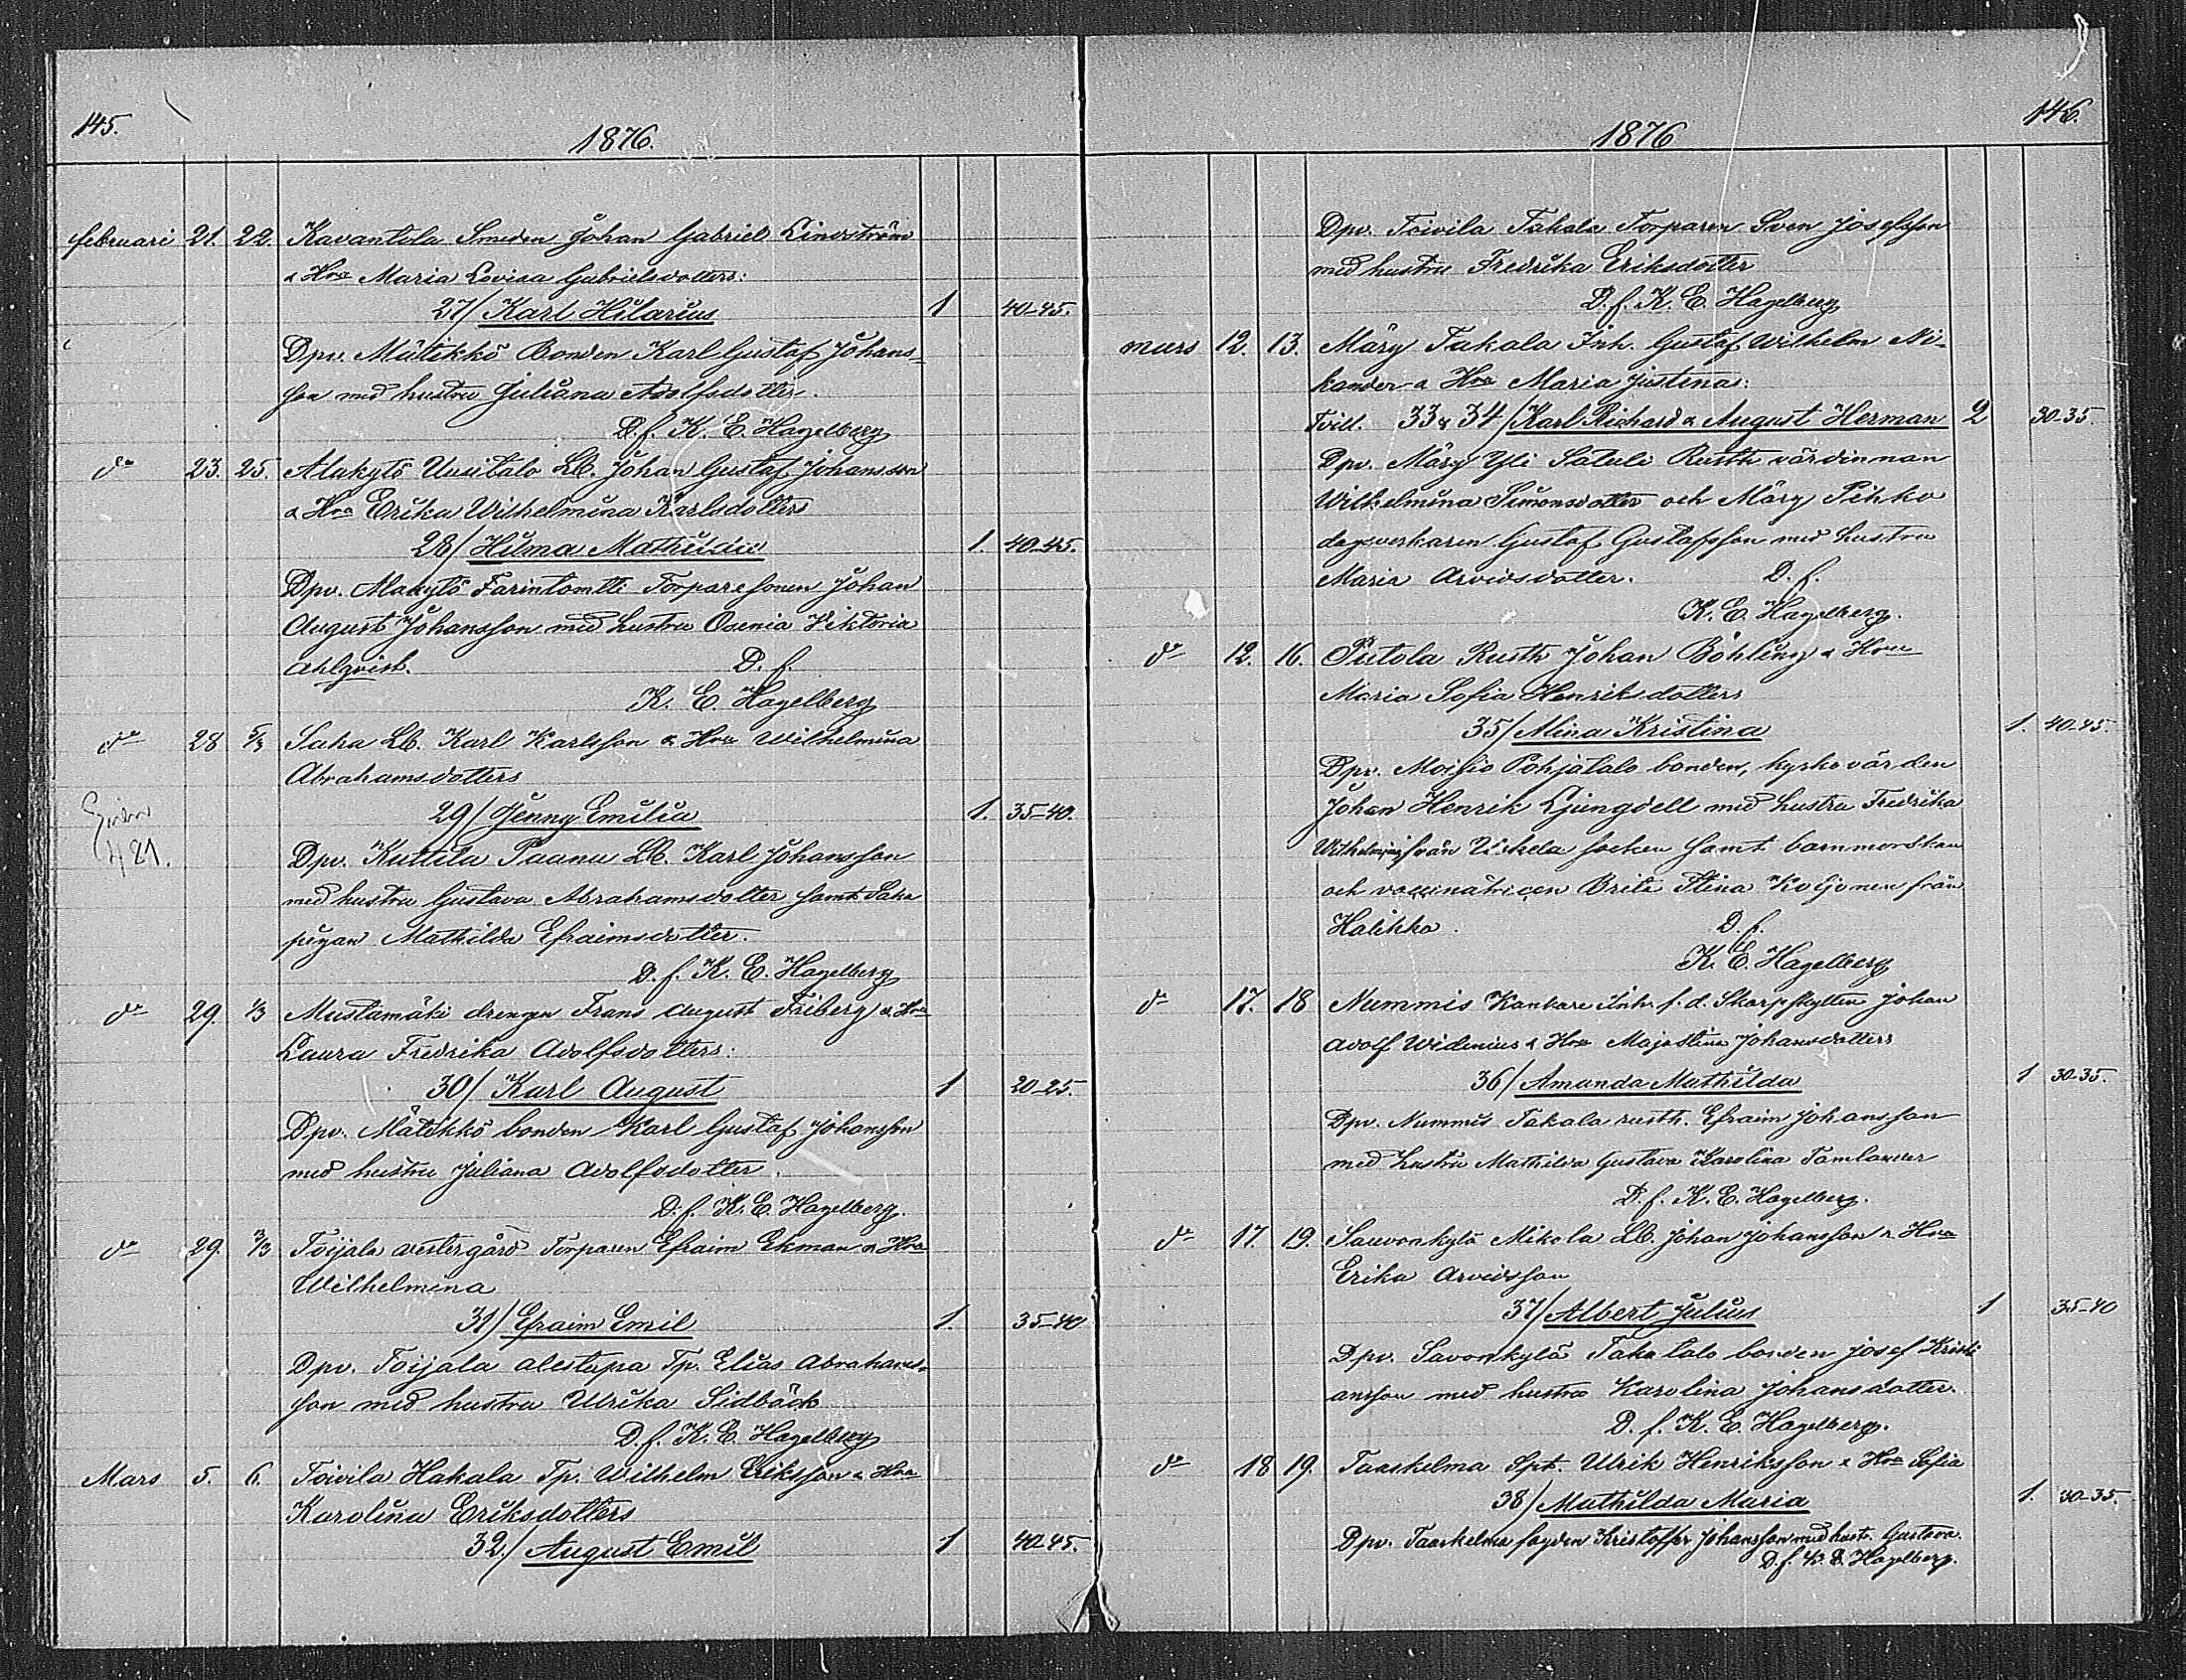 145.
1876.
februari 21. 22. Kavantola Smeden Johan Gabriel Lindström
& Hru Maria Lovisa Gabrielsdotters:
27/ Karl Hilarius 1 40-45.
Dpv. Mätikkö Bonden Karl Gustaf Johans-
son med hustru Juliana Adolfsdotter.
D.f. K. E. Hagelberg
do 23. 25. Alakytö Uusitalo Lb. Johan Gustaf Johansson
& Hru Erika Wilhelmina Karlsdotters
28/ Hilma Mathilda 1. 40-45.
Dpv. Alakytö Farintomtti Torparesonen Johan
August Johansson med hustru Osenia Viktoria
Ahlqvist. D. f.
K. E. Hagelberg
do 28 5/3 Saha Lb. Karl Karlsson & Hru Wilhelmina
Abrahamsdotters
29/ Jenny Emilia 1. 35-40.
481.
Dpv. Kuttila Paanu Lb. Karl Johansson
med hustru Gustava Abrahamsdotter samt Saha
pigan Mathilda Efraimsdotter.
D. f. K. E. Hagelberg
do 29. 1/3 Mustamäki drengen Frans August Friberg & Hru
Laura Fredrika Adolfsdotters:
30/ Karl August 1 20-25.
Dpv. Mätikkö bonden Karl Gustaf Johansson
med hustru Juliana Adolfsdotter.
D. f. K. E. Hagelberg.
do 29. 3/3 Toijala vestergård Torparen Efraim Ekman & Hru
Wilhelmina
31/ Efraim Emil 1. 35-40
Dpv. Toijala alestupa Tp. Elias Abrahams-
son med hustru Ulrika Sidbäck
D. f. K. E. Hagelberg
Mars 5. 6. Toivila Hakala Tp. Wilhelm Eriksson & Hru
Karolina Eriksdotters
32./ August Emil 1 40-45.
146.
1876
Dpv. Toivila Takala Torparen Sven Josefsson
med hustru Fredrika Eriksdotter
D. f. K. E. Hagelberg
mars 12. 13. Märy Takala Inh. Gustaf Wilhelm Ni-
kander & Hru Maria Justina:
Tvill. 33 & 34/ Karl Richard & August Herman 2 30-35.
Dpv. Märy Yli Satuli Rusth värdinnan
Wilhelmina Simonsdotter och Märy Pihko
dagsverkaren Gustaf Gustafsson med hustru
Maria Arvidsdotter. D. f.
K. E. Hagelberg.
do 12. 16. Pietola Rusth Johan Böhling & Hru
Maria Sofia Henriksdotters
35/ Mina Kristina 1. 40-45.
Dpv. Moisio Pohjatalo bonden, kyrkovärden
Johan Henrik Ljungdell med hustru Fredrika
Wilhelmina från Uskela socken samt barnmorskan
och vaccinatricen Brita Stina Koljonen från
Halikko. D. f.
K. E. Hagelberg
do 17. 18 Nummis Kankare Inh. f. d. Skarpskytten Johan
Adolf Widenius & Hru Maja Stina Johansdotters
36/ Amanda Mathilda 1 30-35.
Dpv. Nummis Takala rusth. Efraim Johansson
med hustru Mathilda Gustava Karolina Tamlander
D. f. K. E. Hagelberg.
do 17. 19. Sauvonkylä Mikola Lb. Johan Johansson & Hru
Erika Arvidsson
37/ Albert Julius 1 35-40
Dpv. Savonkylä Takatalo bonden Josef Kristi
ansson med hustru Karolina Johansdotter.
D. f. K. E. Hagelberg.
do 18 19. Taaskelma Spt. Ulrik Henriksson & Hru Sofia
38/ Mathilda Maria 1. 30-35.
Dpv. Taaskelma fogden Kristoffer Johansson med hust. Gustava.
D. f. K. E. Hagelberg.